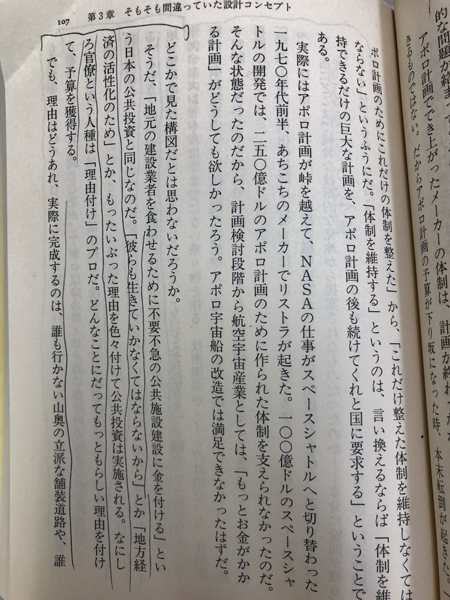 107　第3章　そもそも間違っていた設計コンセプト
的な問題が終ま
アポロ計画でき上がったメーカーの体制は、計画が終わ
きるものではない。だからアポロ計画の予算が下り坂になった時、本末転倒が起きた。
ポロ計画のためにこれだけの体制を整えた」から、「これだけ整えた体制を維持しなくては
ならない」というふうにだ。「体制を維持する」というのは、言い換えるならば「体制を維
持できるだけの巨大な計画を、アポロ計画の後も続けてくれと国に要求する」ということで
ある。
実際にはアポロ計画が峠を越えて、NASAの仕事がスペースシャトルへと切り替わった
一九七〇年代前半、あちこちのメーカーでリストラが起きた。一〇〇億ドルのスペースシャ
トルの開発では、二五〇億ドルのアポロ計画のために作られた体制を支えられなかったのだ。
そんな状態だったのだから、計画検討段階から航空宇宙産業としては、「もっとお金がかか
る計画」がどうしても欲しかったろう。アポロ宇宙船の改造では満足できなかったはずだ。
どこかで見た構図だとは思わないだろうか。
そうだ、「地元の建設業者を食わせるために不要不急の公共施設建設に金を付ける」とい
う日本の公共投資と同じなのだ。「彼らも生きていかなくてはならないから」とか「地方経
済の活性化のため」とか、もったいぶった理由を色々付けて公共投資は実施される。なにし
ろ官僚という人種は「理由付け」のプロだ。どんなことにだってもっともらしい理由を付け
て、予算を獲得する。
でも、理由はどうあれ、実際に完成するのは、誰も行かない山奥の立派な舗装道路や、誰